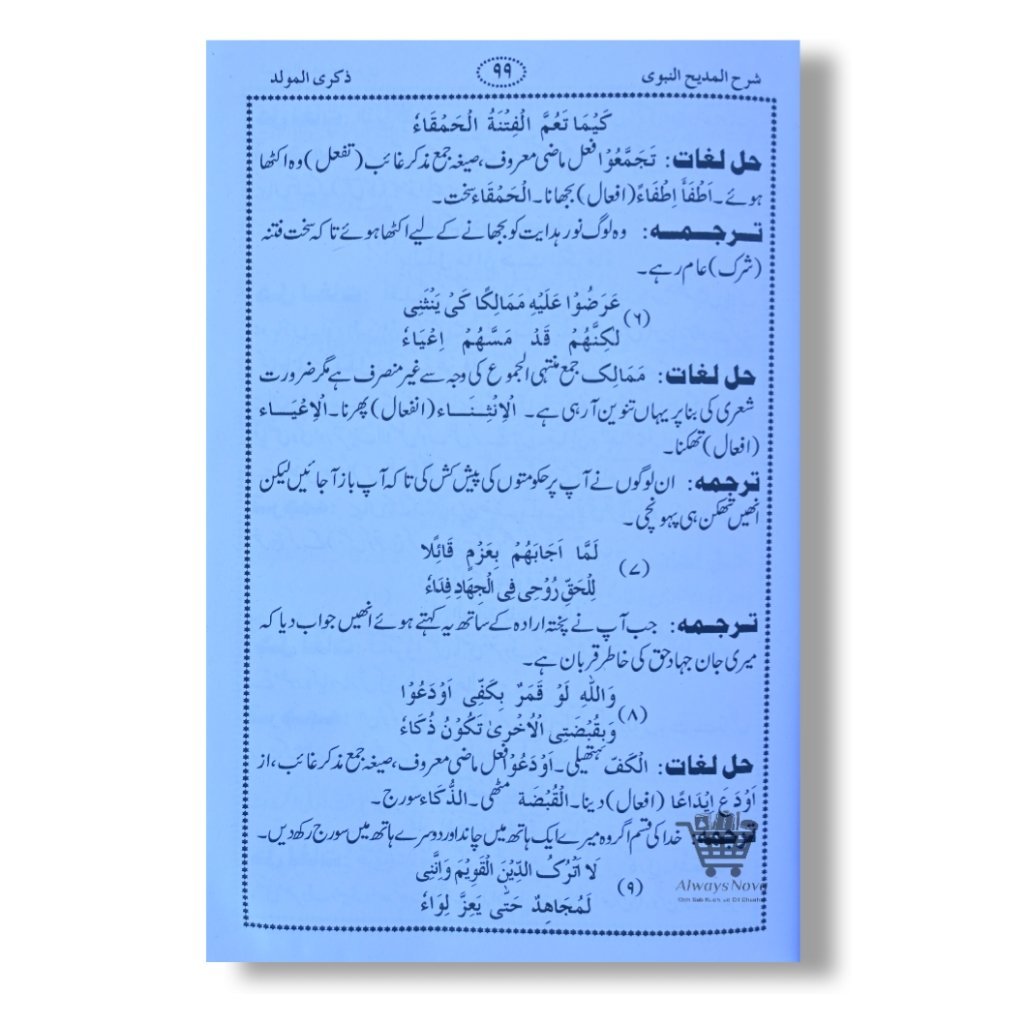 شرح المديح النبوى ۹۹ ذكرى المولد
كَيْمَا تَعُمَّ الْفِتْنَةُ الْحَمْقَاءُ
حل لغات: تَجَمَّعُوْا فعل ماضی معروف، صیغہ جمع مذکر غائب (تفعل) وہ اکٹھا
ہوئے۔ اَطْفَأَ اِطْفَاءً (افعال) بجھانا۔ الْحَمْقَاء سخت۔
ترجمہ: وہ لوگ نور ہدایت کو بجھانے کے لیے اکٹھا ہوئے تاکہ سخت فتنہ
(شرک) عام رہے۔
(۶) عَرَضُوْا عَلَيْهِ مَمَالِكًا كَىْ يَنْثَنِى
لٰكِنَّهُمْ قَدْ مَسَّهُمْ اِعْيَاءُ
حل لغات: مَمَالِک جمع منتہی الجموع کی وجہ سے غیر منصرف ہے مگر ضرورت
شعری کی بنا پر یہاں تنوین آرہی ہے۔ الْاِنْثِنَاء (انفعال) پھرنا۔ الْاِعْيَاء
(افعال) تھکنا۔
ترجمہ: ان لوگوں نے آپ پر حکومتوں کی پیش کش کی تاکہ آپ باز آجائیں لیکن
انھیں تھکن ہی پہونچی۔
(۷) لَمَّا اَجَابَهُمْ بِعَزْمٍ قَائِلًا
لِلْحَقِّ رُوْحِى فِى الْجِهَادِ فِدَاءُ
ترجمہ: جب آپ نے پختہ ارادہ کے ساتھ یہ کہتے ہوئے انھیں جواب دیا کہ
میری جان جہاد حق کی خاطر قربان ہے۔
(۸) وَاللّٰهِ لَوْ قَمَرٌ بِكَفِّى اَوْدَعُوْا
وَبِقُبْضَتِى الْاُخْرىٰ تَكُوْنُ ذُكَاءُ
حل لغات: الْكَفّ ہتھیلی۔ اَوْدَعُوْا فعل ماضی معروف، صیغہ جمع مذکر غائب، از
اَوْدَعَ اِيْدَاعًا (افعال) دینا۔ الْقُبْضَة مٹھی۔ الذُّكَاء سورج۔
ترجمہ: خدا کی قسم اگر وہ میرے ایک ہاتھ میں چاند اور دوسرے ہاتھ میں سورج رکھ دیں۔
(۹) لَا اَتْرُكُ الدِّيْنَ الْقَوِيْمَ وَاِنَّنِى
لَمُجَاهِدٌ حَتّٰى يَعِزَّ لِوَاءُ
Always Nova